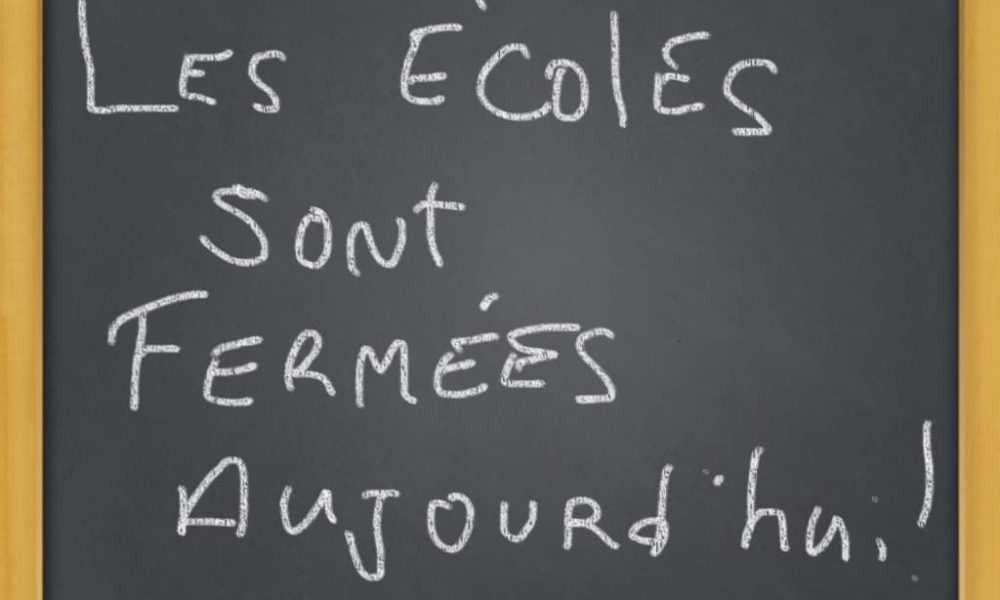 LES ÉCOlES
SONt
FERMÉES
AUJOURd'hui!